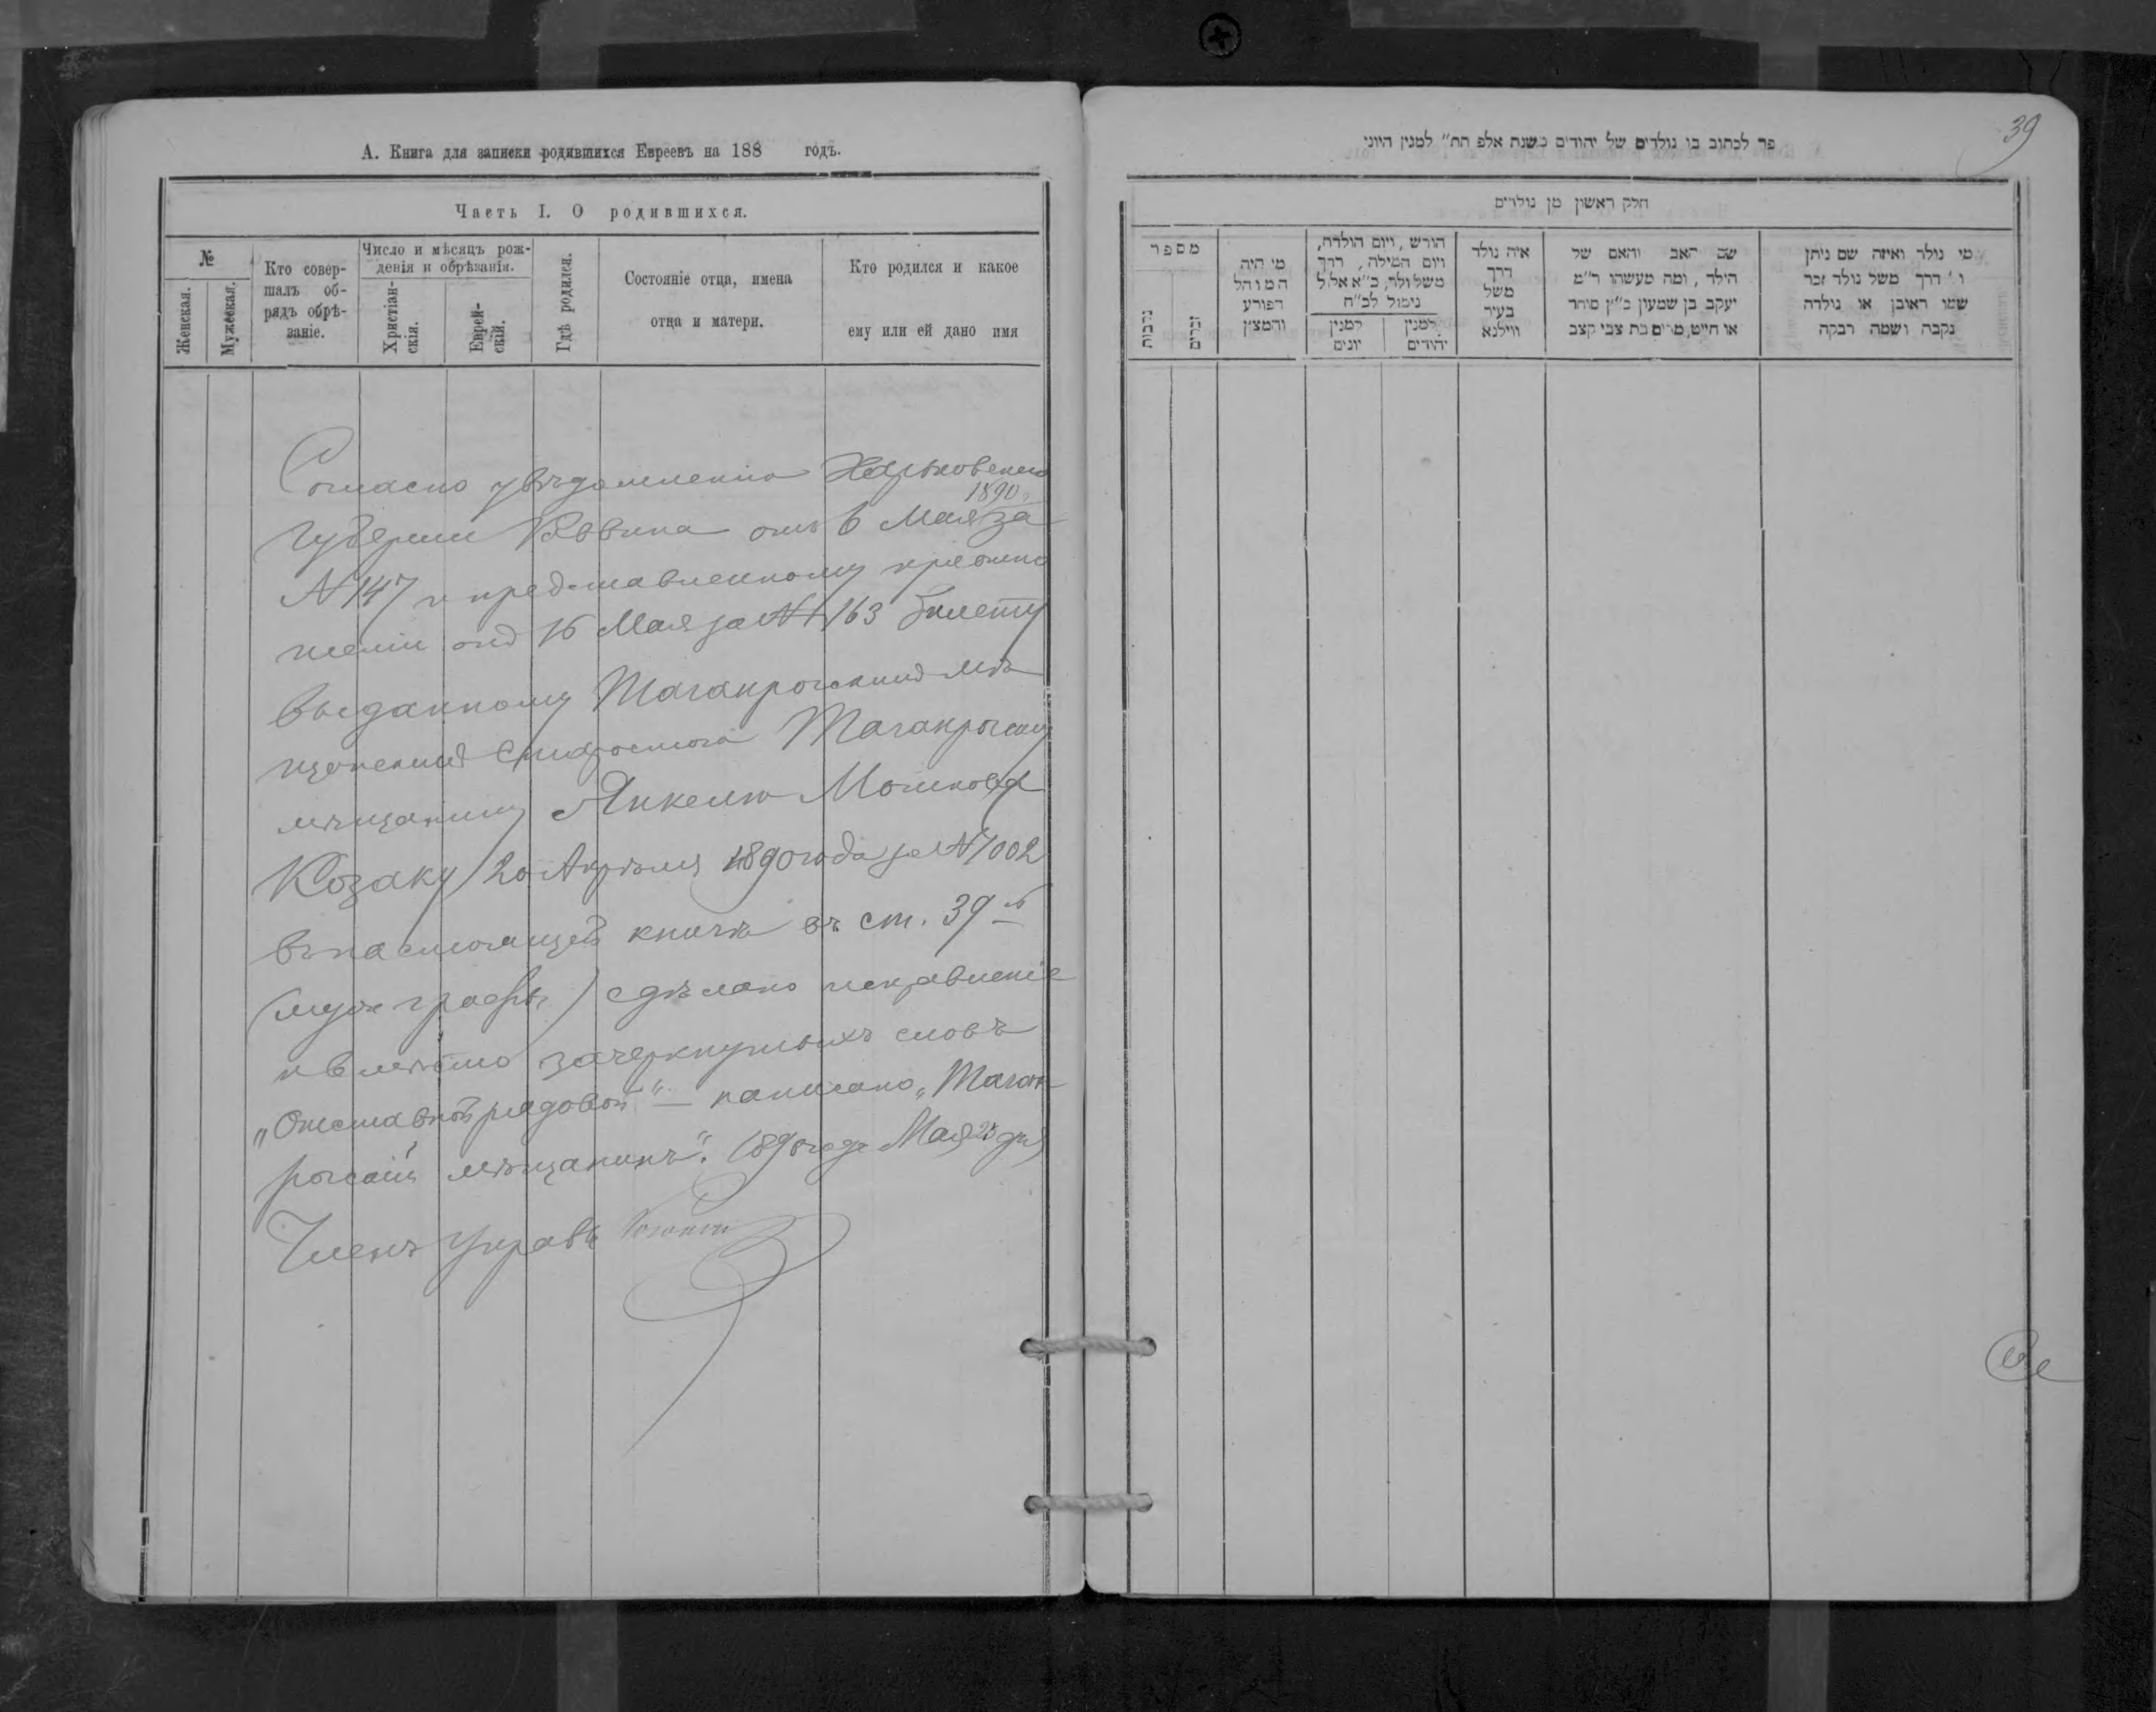 А. Книга для записки родившихся Евреевъ на 188 годъ.
Часть I. О родившихся.
№
Женская.
Мужеская.
Кто совер-
шалъ об-
рядъ обрѣ-
заніе.
Число и мѣсяцъ рож-
денія и обрѣзанія.
Христіан-
скія.
Еврей-
скій.
Гдѣ родился.
Состояніе отца, имена
отца и матери.
Кто родился и какое
ему или ей дано имя
Согласно увѣдомленію Харьковскаго
1890 г.
Губерн Раввина отъ 6 Мая за
N 147 и представленному при отно
шеніи отъ 16 Мая за № 163 билету
выданному Таганрогскимъ мѣ
щанскимъ старостою Таганрогскому
мѣщанину Янкелю Мошкову
Козаку 20 Апрѣля 1890 года за № 1002
въ настоящей книгѣ въ ст. 39
(муж графы) сдѣлано исправленіе
и вмѣсто зачеркнутыхъ словъ
„Отставной рядовой" — написано „Таган
рогскій мѣщанинъ". 1890 года Мая 25 дня
Членъ Управы
39
פר לכתוב בו נולדים של יהודים בשנת אלפ תת״ למנין היוני
חלק ראשון מן נולדים
מספר
נקבות
זכרים
מי היה
המוהל
הפורע
והמצין
חורש, ויום הולדת,
ויום המילה, דרך
משל ולד, כ״א אלול
נימול לכ״ח
למנין
יונים
למנין
יהודים
איה נולד
דרך
משל
בעיר
ווילנא
שם האב והאם של
הילד, ומה מעשהו ר״מ
יעקב בן שמעון כ״ץ סוחר
או חייט, מרים בת צבי קצב
מי נולד ואיזה שם ניתן
ו' דרך משל נולד זכר
שמו ראובן או נולדה
נקבה ושמה רבקה